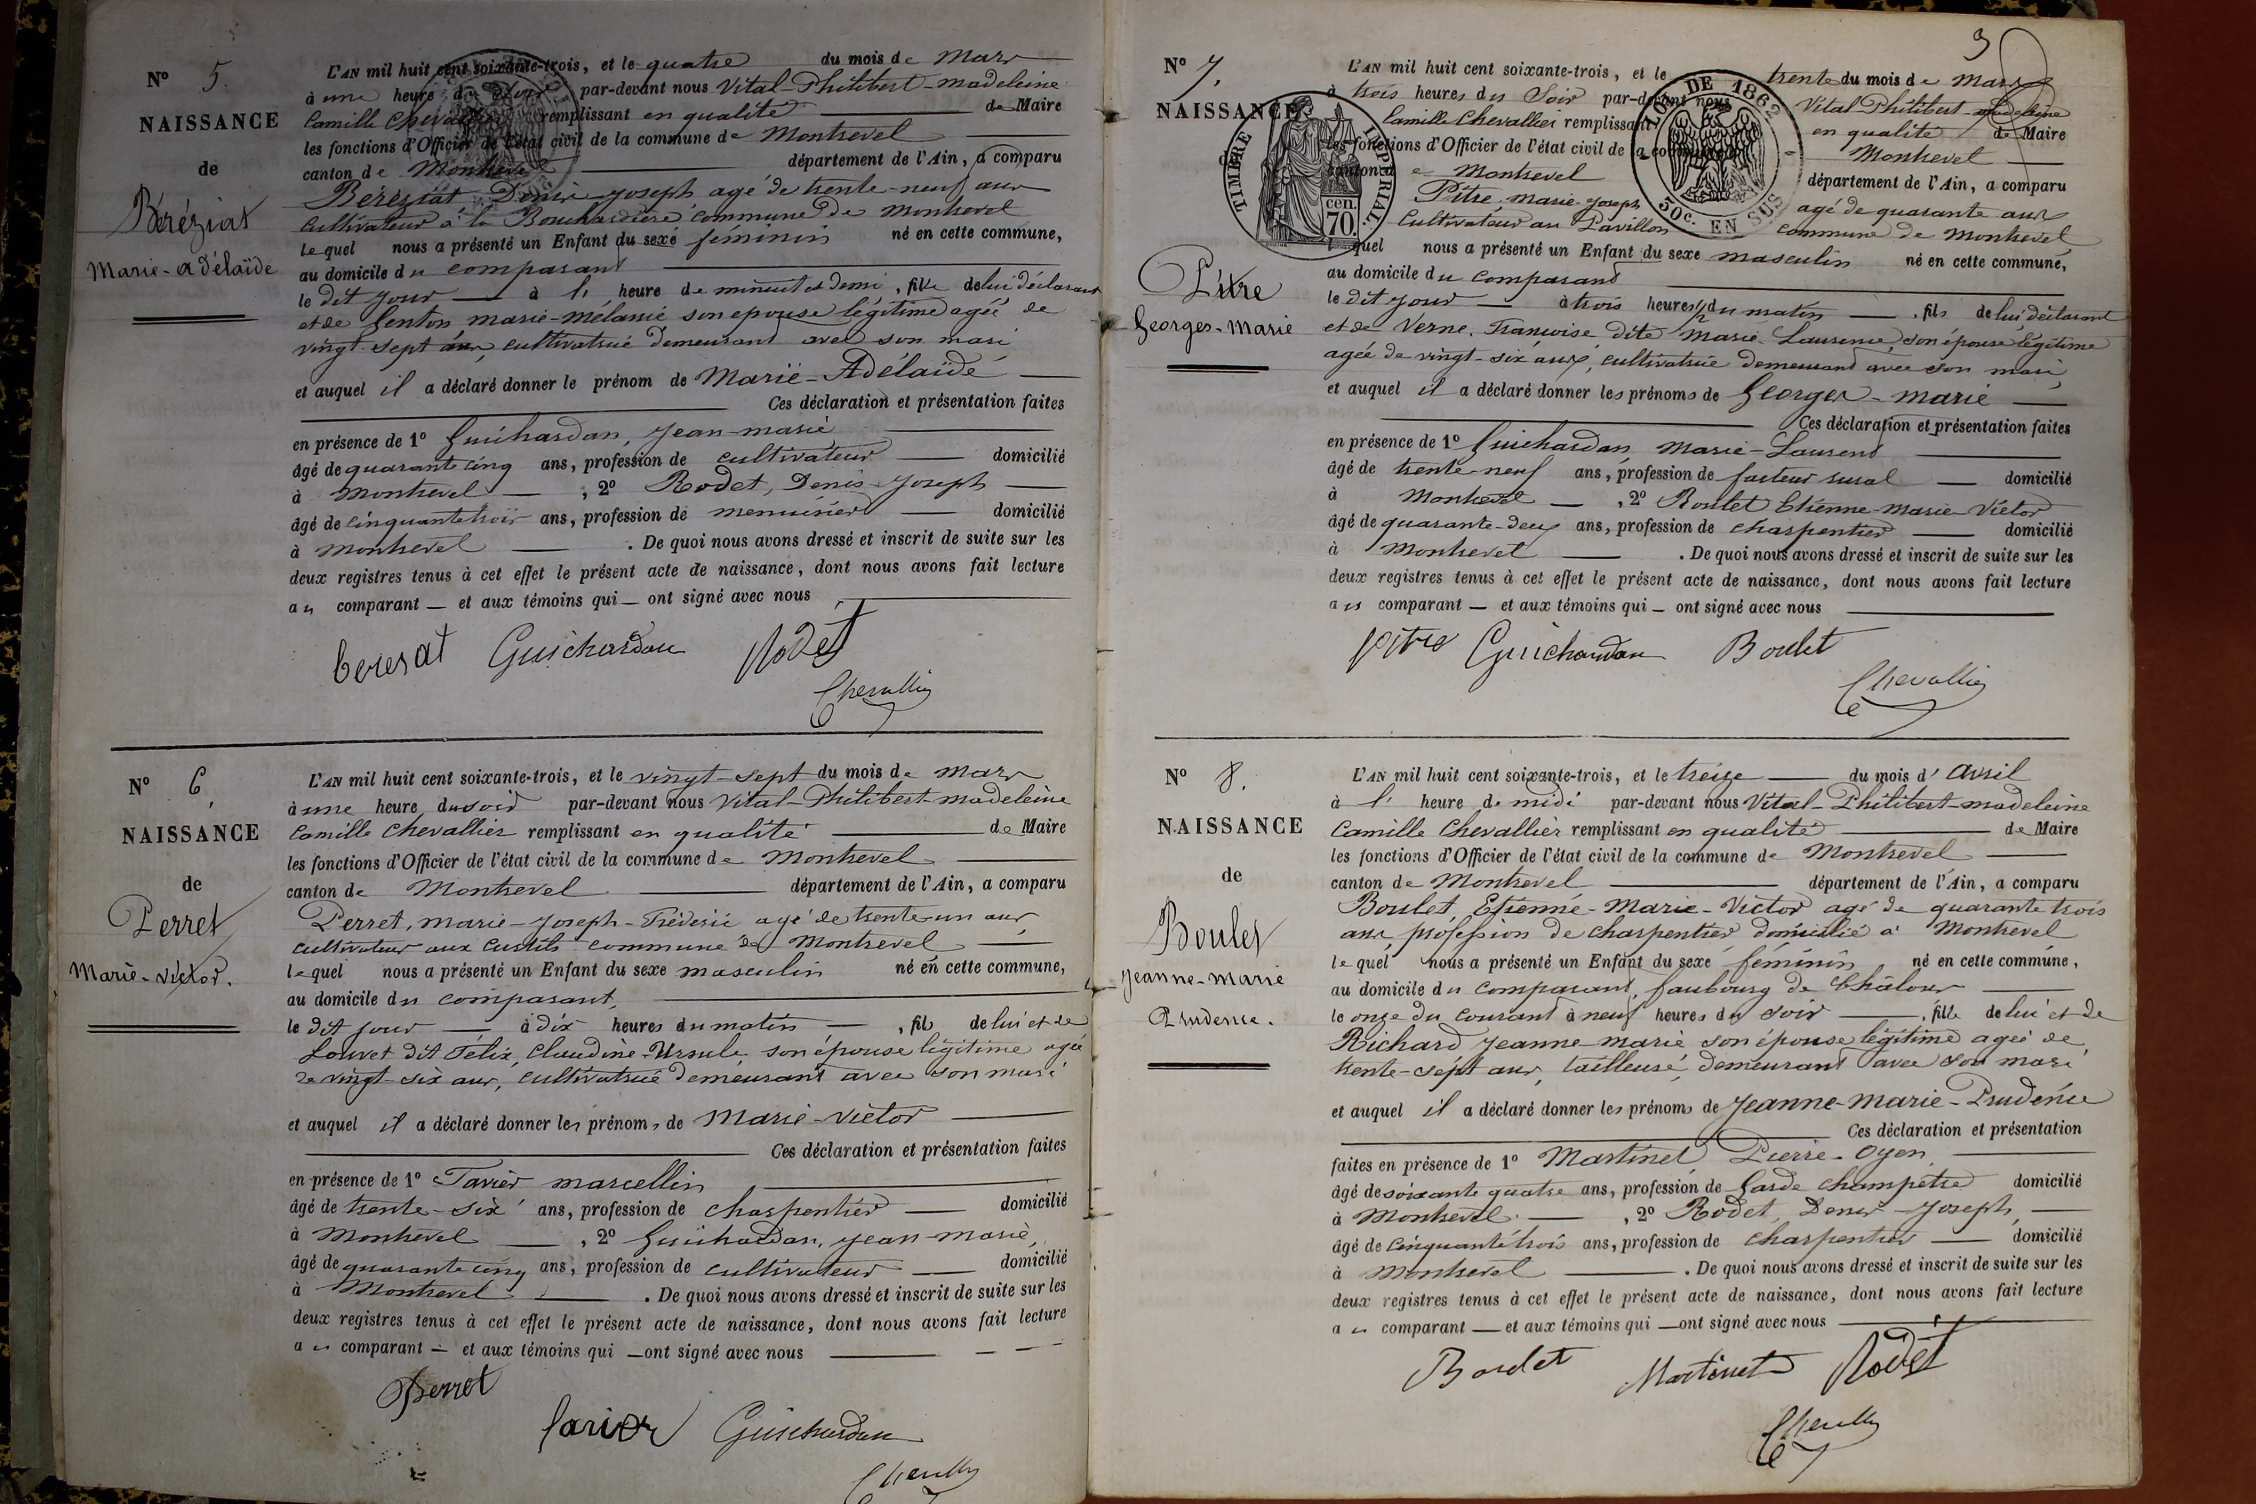 N° 5.
NAISSANCE
de
Béréziat
Marie-Adélaïde
L'AN mil huit cent soixante-trois, et le quatre du mois de Mars
à une heure du Soir par-devant nous Vital-Philibert-Madeleine
Camille Chevallier remplissant en qualité de Maire
les fonctions d'Officier de l'état civil de la commune de Montrevel
canton de Montrevel département de l'Ain, a comparu
Béréziat Denis Joseph agé de trente-neuf ans
Cultivateur à la Bouchardière commune de Montrevel
lequel nous a présenté un Enfant du sexe féminin né en cette commune,
au domicile du comparant
le dit jour à l' heure de minuit et demi, fille de lui déclarant
et de Genton marie-mélanie son epouse légitime agée de
vingt-sept ans, cultivatrice demeurant avec son mari
et auquel il a déclaré donner le prénom de Marie-Adélaïde
Ces déclaration et présentation faites
en présence de 1° Guichardan, Jean-marie
âgé de quarante cinq ans, profession de cultivateur domicilié
à Montrevel, 2° Rodet, Denis-Joseph
âgé de cinquante trois ans, profession de menuisier domicilié
à Montrevel. De quoi nous avons dressé et inscrit de suite sur les
deux registres tenus à cet effet le présent acte de naissance, dont nous avons fait lecture
au comparant — et aux témoins qui — ont signé avec nous
beresat Guichardan Rodet
Chevallier
N° 6.
NAISSANCE
de
Perret
Marie-Victor.
L'AN mil huit cent soixante-trois, et le vingt-sept du mois de Mars
à une heure du soir par-devant nous Vital-Philibert-Madeleine
Camille Chevallier remplissant en qualité de Maire
les fonctions d'Officier de l'état civil de la commune de Montrevel
canton de Montrevel département de l'Ain, a comparu
Perret, marie-Joseph-Fréderic agé de trente-un ans
cultivateur aux Curtils commune de Montrevel
lequel nous a présenté un Enfant du sexe masculin né en cette commune,
au domicile du comparant,
le dit jour à dix heures du matin, fils de lui et de
Louvet dit Félix, Claudine-Ursule son épouse légitime agée
de vingt-six ans, cultivatrice demeurant avec son mari
et auquel il a déclaré donner les prénoms de Marie-Victor
Ces déclaration et présentation faites
en présence de 1° Farier marcellin
âgé de trente-six ans, profession de charpentier domicilié
à Montrevel, 2° Guichardan, Jean-marie,
âgé de quarante cinq ans, profession de cultivateur domicilié
à Montrevel. De quoi nous avons dressé et inscrit de suite sur les
deux registres tenus à cet effet le présent acte de naissance, dont nous avons fait lecture
au comparant — et aux témoins qui — ont signé avec nous
Perret
farier Guichardan
Chevallier
3
N° 7.
NAISSANCE
Pitre
Georges-Marie
TIMBRE IMPERIAL
cen. 70.
LOI DE 1862
50c. EN SUS
L'AN mil huit cent soixante-trois, et le trente du mois de Mars
à trois heures du Soir par-devant nous Vital Philibert-Madeleine
Camille Chevallier remplissant en qualité de Maire
les fonctions d'Officier de l'état civil de la commune Montrevel
canton de Montrevel département de l'Ain, a comparu
Pitre marie-Joseph agé de quarante ans
Cultivateur au Pavillon commune de Montrevel
lequel nous a présenté un Enfant du sexe masculin né en cette commune,
au domicile du comparant
le dit jour à trois heures ½ du matin, fils de lui déclarant
et de Verne. Françoise dite Marie Laurence, son épouse légitime
agée de vingt-six ans, cultivatrice demeurant avec son mari,
et auquel il a déclaré donner les prénoms de Georges-marie
Ces déclaration et présentation faites
en présence de 1° Guichardan Marie-Laurent
âgé de trente-neuf ans, profession de facteur rural domicilié
à Montrevel, 2° Boulet Etienne-Marie-Victor
âgé de quarante-deux ans, profession de charpentier domicilié
à Montrevel. De quoi nous avons dressé et inscrit de suite sur les
deux registres tenus à cet effet le présent acte de naissance, dont nous avons fait lecture
aus comparant — et aux témoins qui — ont signé avec nous
pitre Guichardan Boulet
Chevallier
N° 8.
NAISSANCE
de
Boulet
Jeanne-Marie
Prudence.
L'AN mil huit cent soixante-trois, et le treize du mois d'avril
à l' heure de midi par-devant nous Vital-Philibert-madeleine
Camille Chevallier remplissant en qualité de Maire
les fonctions d'Officier de l'état civil de la commune de Montrevel
canton de Montrevel département de l'Ain, a comparu
Boulet, Etienne-Marie-Victor agé de quarante trois
ans, profession de charpentier domicilié à Montrevel
lequel nous a présenté un Enfant du sexe féminin né en cette commune,
au domicile du comparant, faubourg de Châlour
le onze du courant à neuf heures du soir, fille de lui et de
Richard Jeanne-marie son épouse légitime agée de
trente-sept ans, tailleuse, demeurant avec son mari
et auquel il a déclaré donner les prénoms de Jeanne-Marie-Prudence
Ces déclaration et présentation
faites en présence de 1° Martinet Pierre-Oyen
âgé de soixante quatre ans, profession de Garde champêtre domicilié
à Montrevel, 2° Rodet, Denis-Joseph,
âgé de cinquante trois ans, profession de charpentier domicilié
à Montrevel. De quoi nous avons dressé et inscrit de suite sur les
deux registres tenus à cet effet le présent acte de naissance, dont nous avons fait lecture
au comparant — et aux témoins qui — ont signé avec nous
Boulet Martinet Rodet
Chevallier